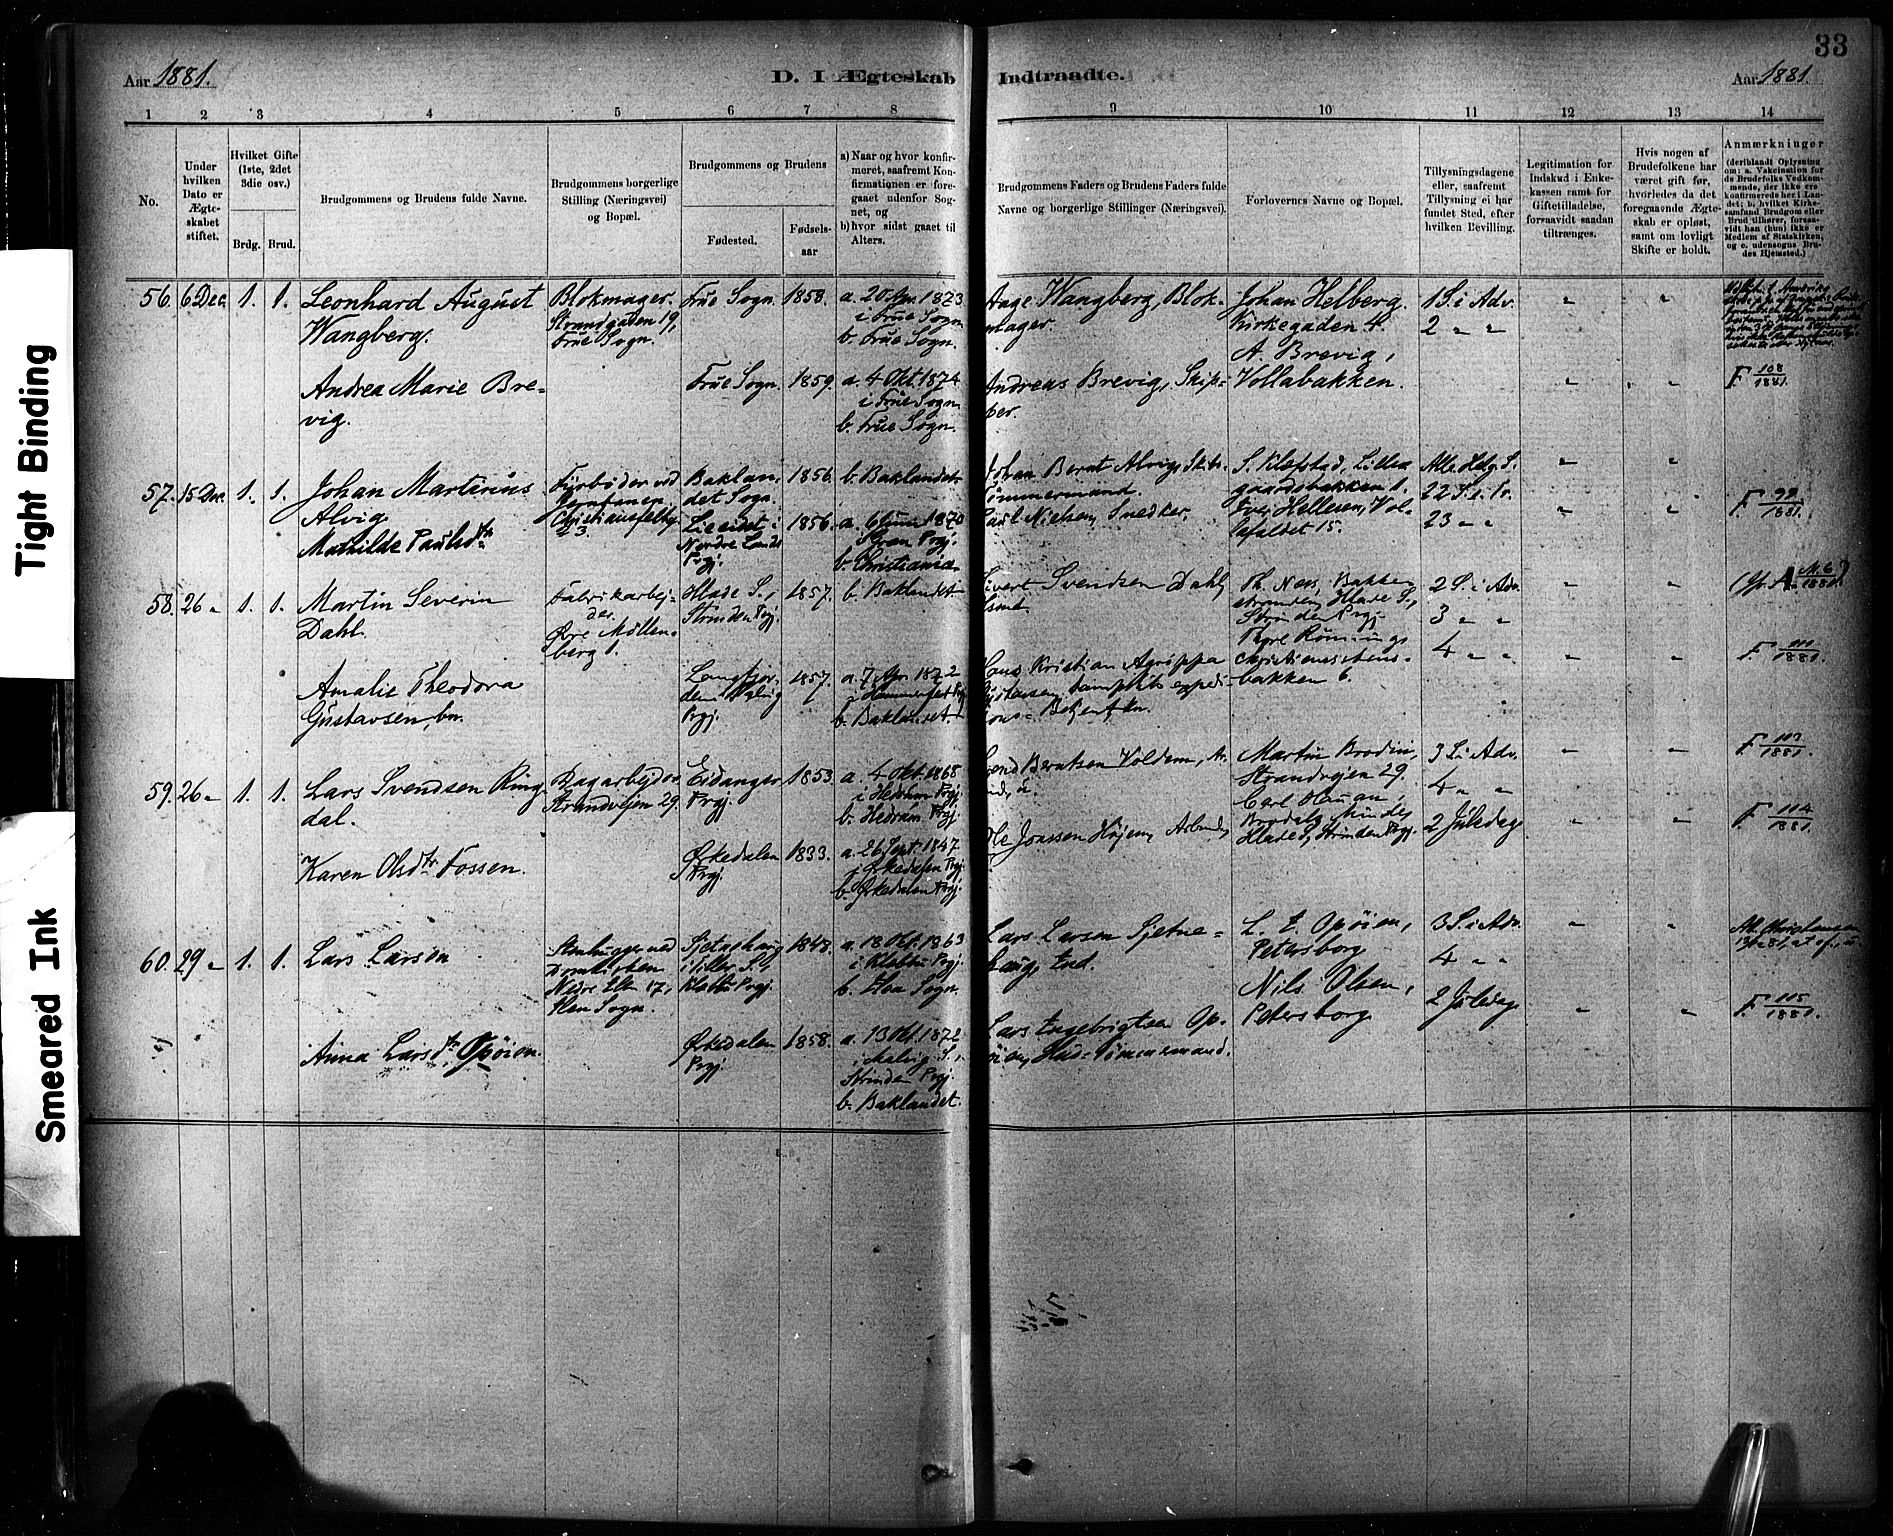 33
Aar 1881.
D. I Ægteskab Indtraadte.
Aar 1881
1 2 3 4 5 6 7 8 9 10 11 12 13 14
No.
Under hvilken Dato er Ægteskabet stiftet.
Hvilket Gifte (1ste, 2det 3die osv.)
Brdg.
Brud.
Brudgommens og Brudens fulde Navne.
Brudgommens borgerlige Stilling (Næringsvei) og Bopæl.
Brudgommens og Brudens
Fødested.
Fødselsaar
a) Naar og hvor konfirmeret, saafremt Konfirmationen er foregaaet udenfor Sognet, og
b) hvor sidst gaaet til Alters.
Brudgommens Faders og Brudens Faders fulde Navne og borgerlige Stillinger (Næringsvei).
Forlovernes Navne og Bopæl.
Tillysningsdagene eller, saafremt Tillysning ei har fundet Sted, efter hvilken Bevilling.
Legitimation for Indskud i Enkekassen samt for Giftetilladelse, forsaavidt saadan tiltrænges.
Hvis nogen af Brudefolkene har været gift før, hvorledes da det foregaaende Ægteskab er opløst, samt om lovligt Skifte er holdt.
Anmærkninger
(deriblandt Oplysning om: a. Vakcination for de Brudefolks Vedkommende, der ikke ere konfirmerede her i Landet; b. hvilket Kirkesamfund Brudgom eller Brud tilhører, forsaavidt han (hun) ikke er Medlem af Statskirken, og c. udensogns Brudes Hjemsted.)
56. 6 Dec. 1. 1. Leonhard August
Wangberg.
Blokmager.
Strandgaden 19,
Frue Sogn.
Frue Sogn. 1858. a. 20 Apr. 1873
i Frue Sogn
b. Frue Sogn.
Aage Wangberg, Blok-
mager.
Johan Helberg.
Kirkegaden 4.
A. Brevig,
Vollabakken.
1 S. i Adv.
2 " "
Andrea Marie Bre-
vig.
Frue Sogn. 1859. a. 4 Okt. 1874
i Frue Sogn
b. Frue Sogn.
Andreas Brevig, Skip-
per.
F. 108/1881.
57. 15 Dec. 1. 1. Johan Martinus
Alvig
Fyrbøder ved
Jernbanen
Baklan-
det Sogn.
1856. b. Baklandet
Johan Bernt Alvig, Skibs-
tømmermand.
Alle Helg. S.
22 S. i Tr.
23 " "
F. 99/1881.
Mathilde Paulsdtr
Nordre Lands
Prgj.
1856. a. 6 Juni 1870
i Gran Prgj.
b. Christiania
Paul Nielsen, Snedker.
Iver Hellesen,
58. 26 " 1. 1. Martin Severin
Dahl.
Fabrikarbej-
der.
Øvre Møllen-
berg.
Hlade S.,
Strinden Prgj.
1857. b. Baklandet
Sivert Svendsen Dahl,
Th. Ness, Bakke-
stranden, Hlade S.,
Strinden Prgj.
2 S. i Adv.
3 " "
4 " "
Amalie Theodora
Gustavsen,
Langfjor-
den,
Prgj.
1857. a. 7 Apr. 1872
i Hammerfest Prgj.
b. Baklandet.
Hans Kristian Agrippa
Gustavsen,
Christianstens-
bakken 6.
F. 111/1881.
59. 26 " 1. 1. Lars Svendsen Ring-
dal.
Dagarbejder
Strandvejen 29.
Eidanger
Prgj.
1853. a. 4 Okt. 1868
i Hedrum Prgj.
b. Hedrum Prgj.
Svend Berntsen Voldem,
Martin Brodin,
Strandvejen 29.
3 S. i Adv.
4 " "
2 Juledag
Karen Olsdtr Fossen.
Ørkedalen
Prgj.
1833. a. 26 Sept. 1847
i Ørkedalen Prgj.
b. Ørkedalen Prgj.
Ole Jonssen Højem,
Hlade S., Strinden Prgj.
F. 114/1881.
60. 29 " 1. 1. Lars Larsen
Stenhugger ved
Domkirken
Nedre Elv 17,
Ilen Sogn.
Sjetnehaug
i Tiller S.,
Klæbu Prgj.
1848. a. 18 Okt. 1863
i Klæbu Prgj.
b. Ilen Sogn.
Lars Larsen Sjetne-
haug, Ind.
L. E. Opøien,
Petersborg
Nils Olsen,
Petersborg
3 S. i Adv.
4 " "
2 Juledag
Anna Larsdtr Opøien.
Ørkedalen
Prgj.
1858. a. 13 Okt. 1872
i Malvig S.,
Strinden Prgj.
b. Baklandet.
Lars Engebrigtsen Op-
øien, Hus-Tømmermand.
F. 115/1881.
Tight Binding
Smeared Ink